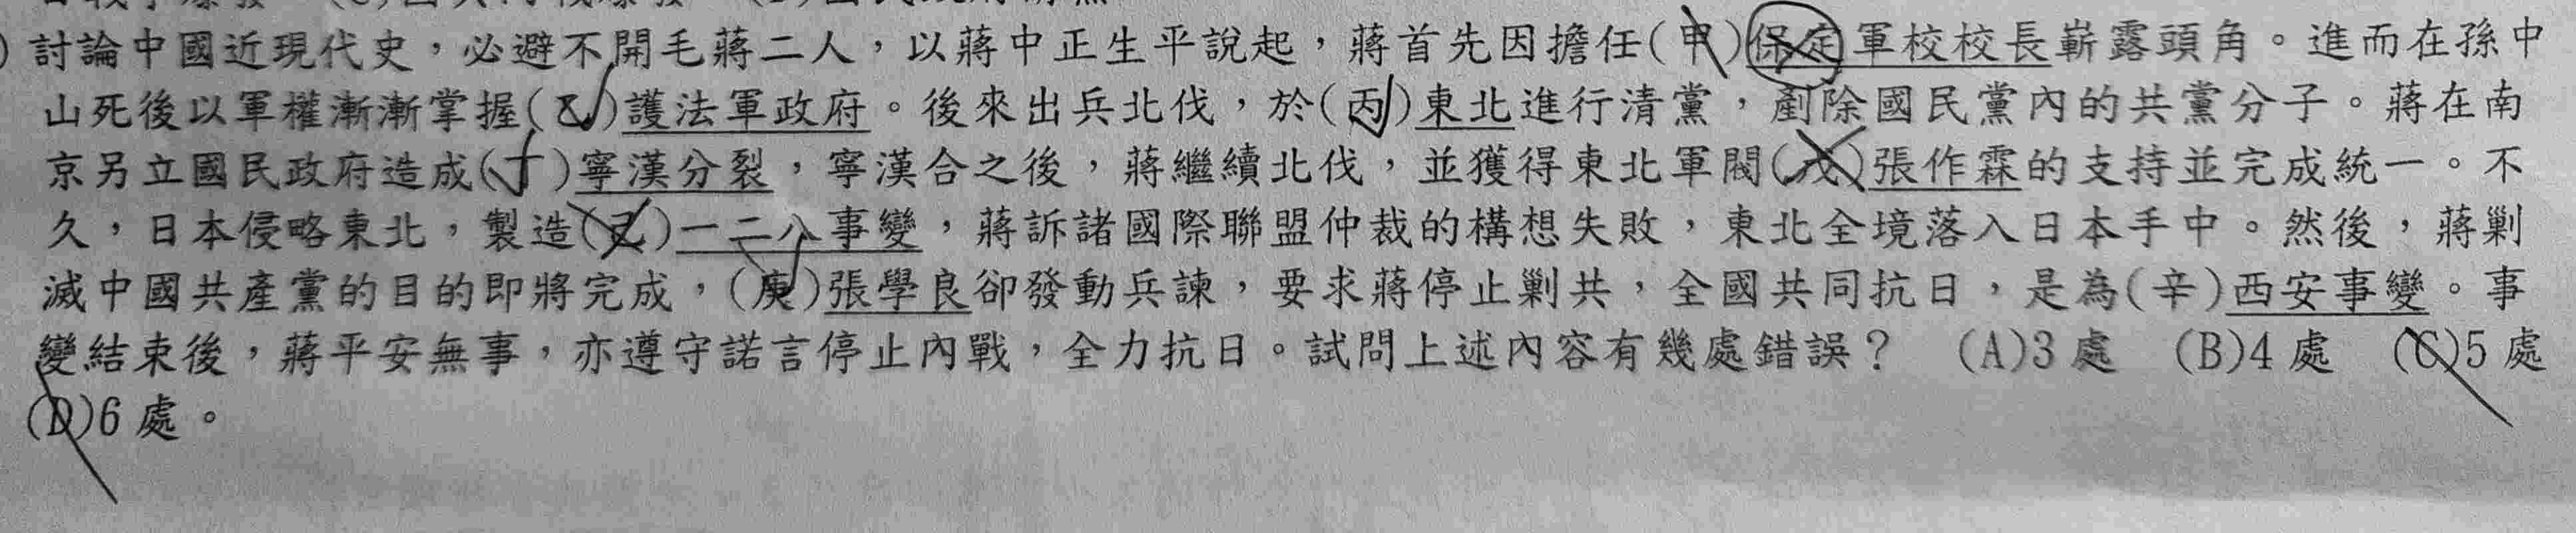 )討論中國近現代史，必避不開毛蔣二人，以蔣中正生平說起，蔣首先因擔任(甲)保定軍校校長嶄露頭角。進而在孫中
山死後以軍權漸漸掌握(乙)護法軍政府。後來出兵北伐，於(丙)東北進行清黨，剷除國民黨內的共黨分子。蔣在南
京另立國民政府造成(丁)寧漢分裂，寧漢合之後，蔣繼續北伐，並獲得東北軍閥(戊)張作霖的支持並完成統一。不
久，日本侵略東北，製造(己)一二八事變，蔣訴諸國際聯盟仲裁的構想失敗，東北全境落入日本手中。然後，蔣剿
滅中國共產黨的目的即將完成，(庚)張學良卻發動兵諫，要求蔣停止剿共，全國共同抗日，是為(辛)西安事變。事
變結束後，蔣平安無事，亦遵守諾言停止內戰，全力抗日。試問上述內容有幾處錯誤？ (A)3處 (B)4處 (C)5處
(D)6處。